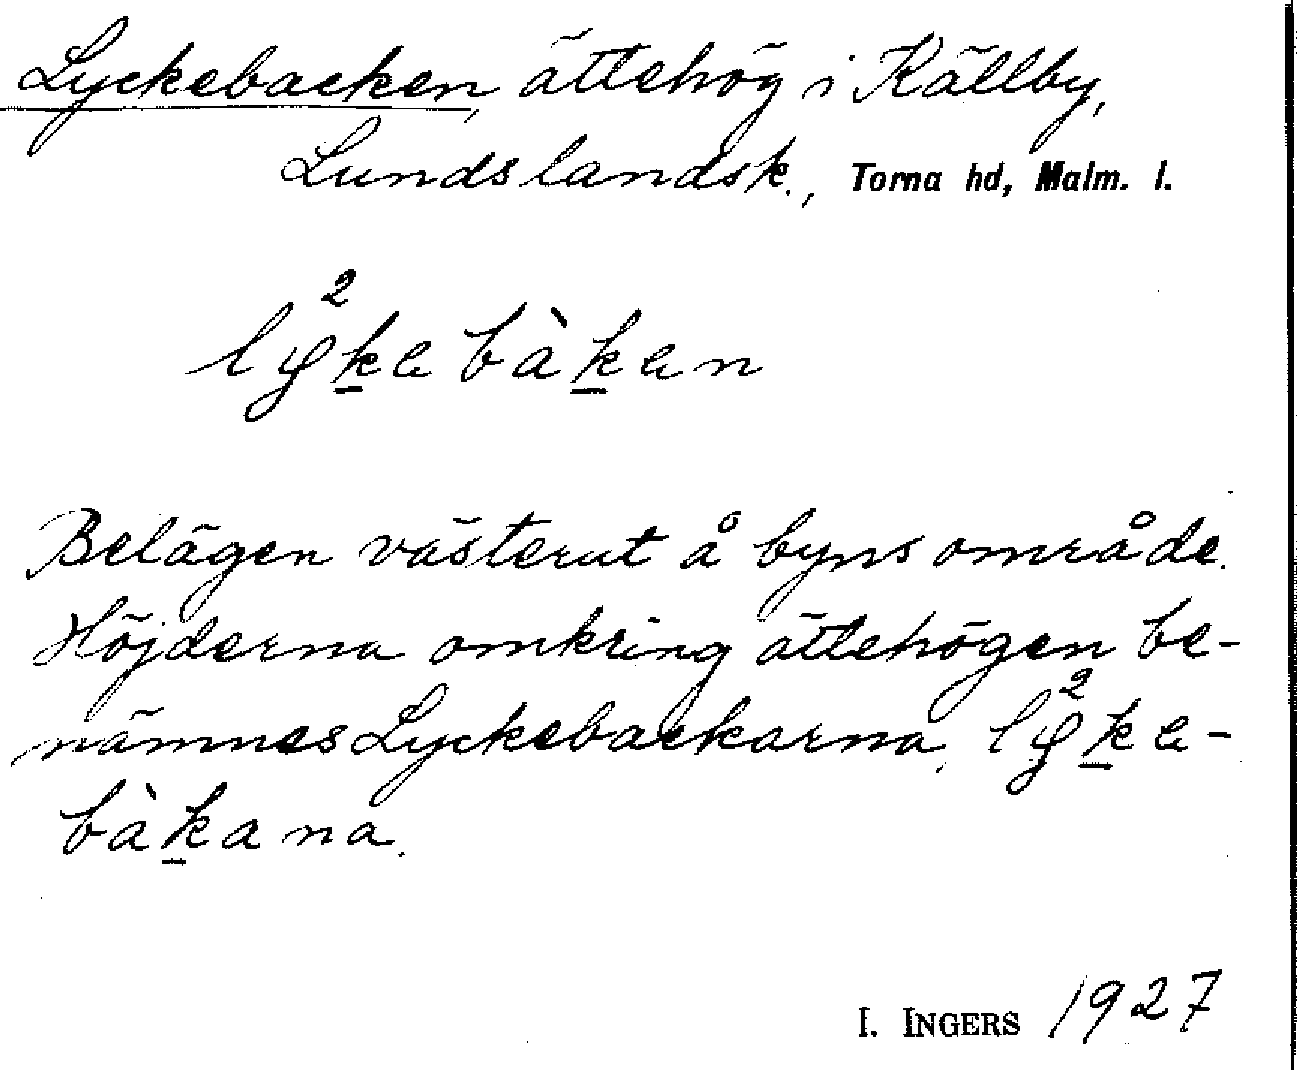 Lyckebacken, ättehög i Källby,
Lunds landsk., Torna hd, Malm. l.
ly̌²k̲ebàk̲en
Belägen västerut å byns område.
Höjderna omkring ättehögen be-
nämnes Lyckebackarna, ly²k̲e-
bàk̲ana.
I. INGERS 1927